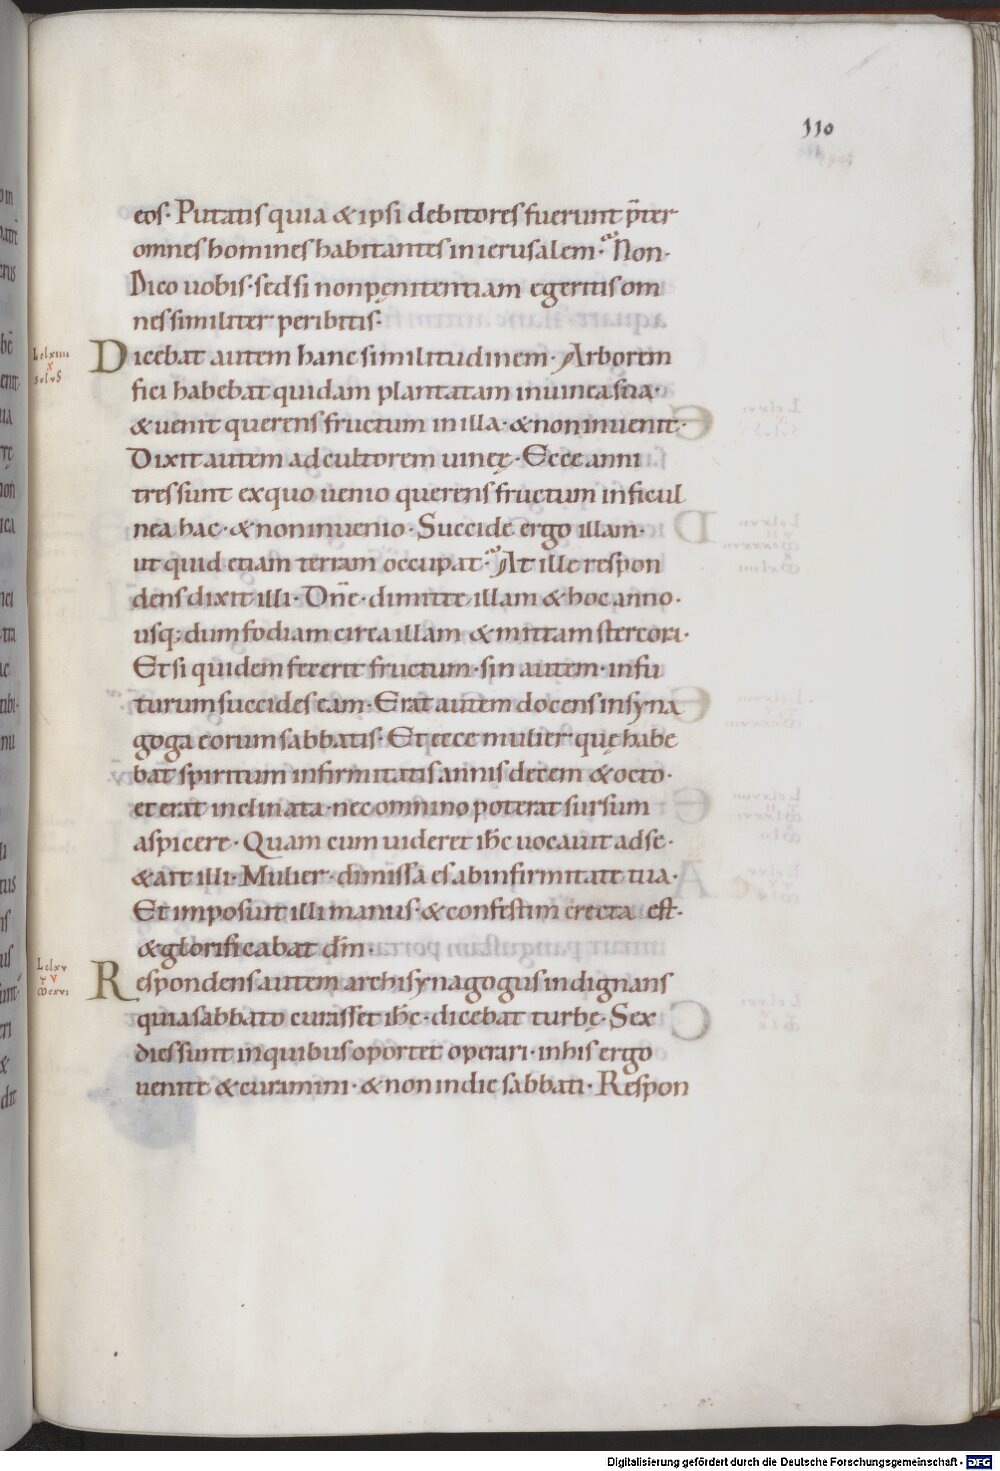 110
eos· Putatis quia & ipsi debitores fuerunt p̄ter
omnes homines habitantes in ierusalem· Non·
Dico uobis· sed si non pęnitentiam egeritis om
nes similiter peribitis·
Lclxiiii
x
solus
Dicebat autem hanc similitudinem· Arborem
fici habebat quidam plantatam in uinea sua·
& uenit querens fructum in illa· & non inuenit·
Dixit autem ad cultorem uineę· Ecce anni
tres sunt ex quo uenio querens fructum in ficul
nea hac· & non inuenio· Succide ergo illam·
ut quid etiam terram occupat· At ille respon
dens dixit illi· Dn̄e· dimitte illam & hoc anno·
usq; dum fodiam circa illam & mittam stercora·
Et si quidem fecerit fructum· sin autem· infu
turum succides eam· Erat autem docens in syna
goga eorum sabbatis· Et ecce mulier quę habe
bat spiritum infirmitatis annis decem & octo·
et erat inclinata· nec omnino poterat sursum
aspicere· Quam cum uideret ih̄c uocauit ad se·
& ait illi· Mulier· dimissa es ab infirmitate tua·
Et imposuit illi manus· & confestim erecta est·
& glorificabat dm̄·
Lclxv
Respondens autem archisynagogus indignans
quia sabbato curasset ih̄c· dicebat turbę· Sex
dies sunt in quibus oportet operari· in his ergo
uenite & curamini· & non in die sabbati· Respon
Digitalisierung gefördert durch die Deutsche Forschungsgemeinschaft - DFG